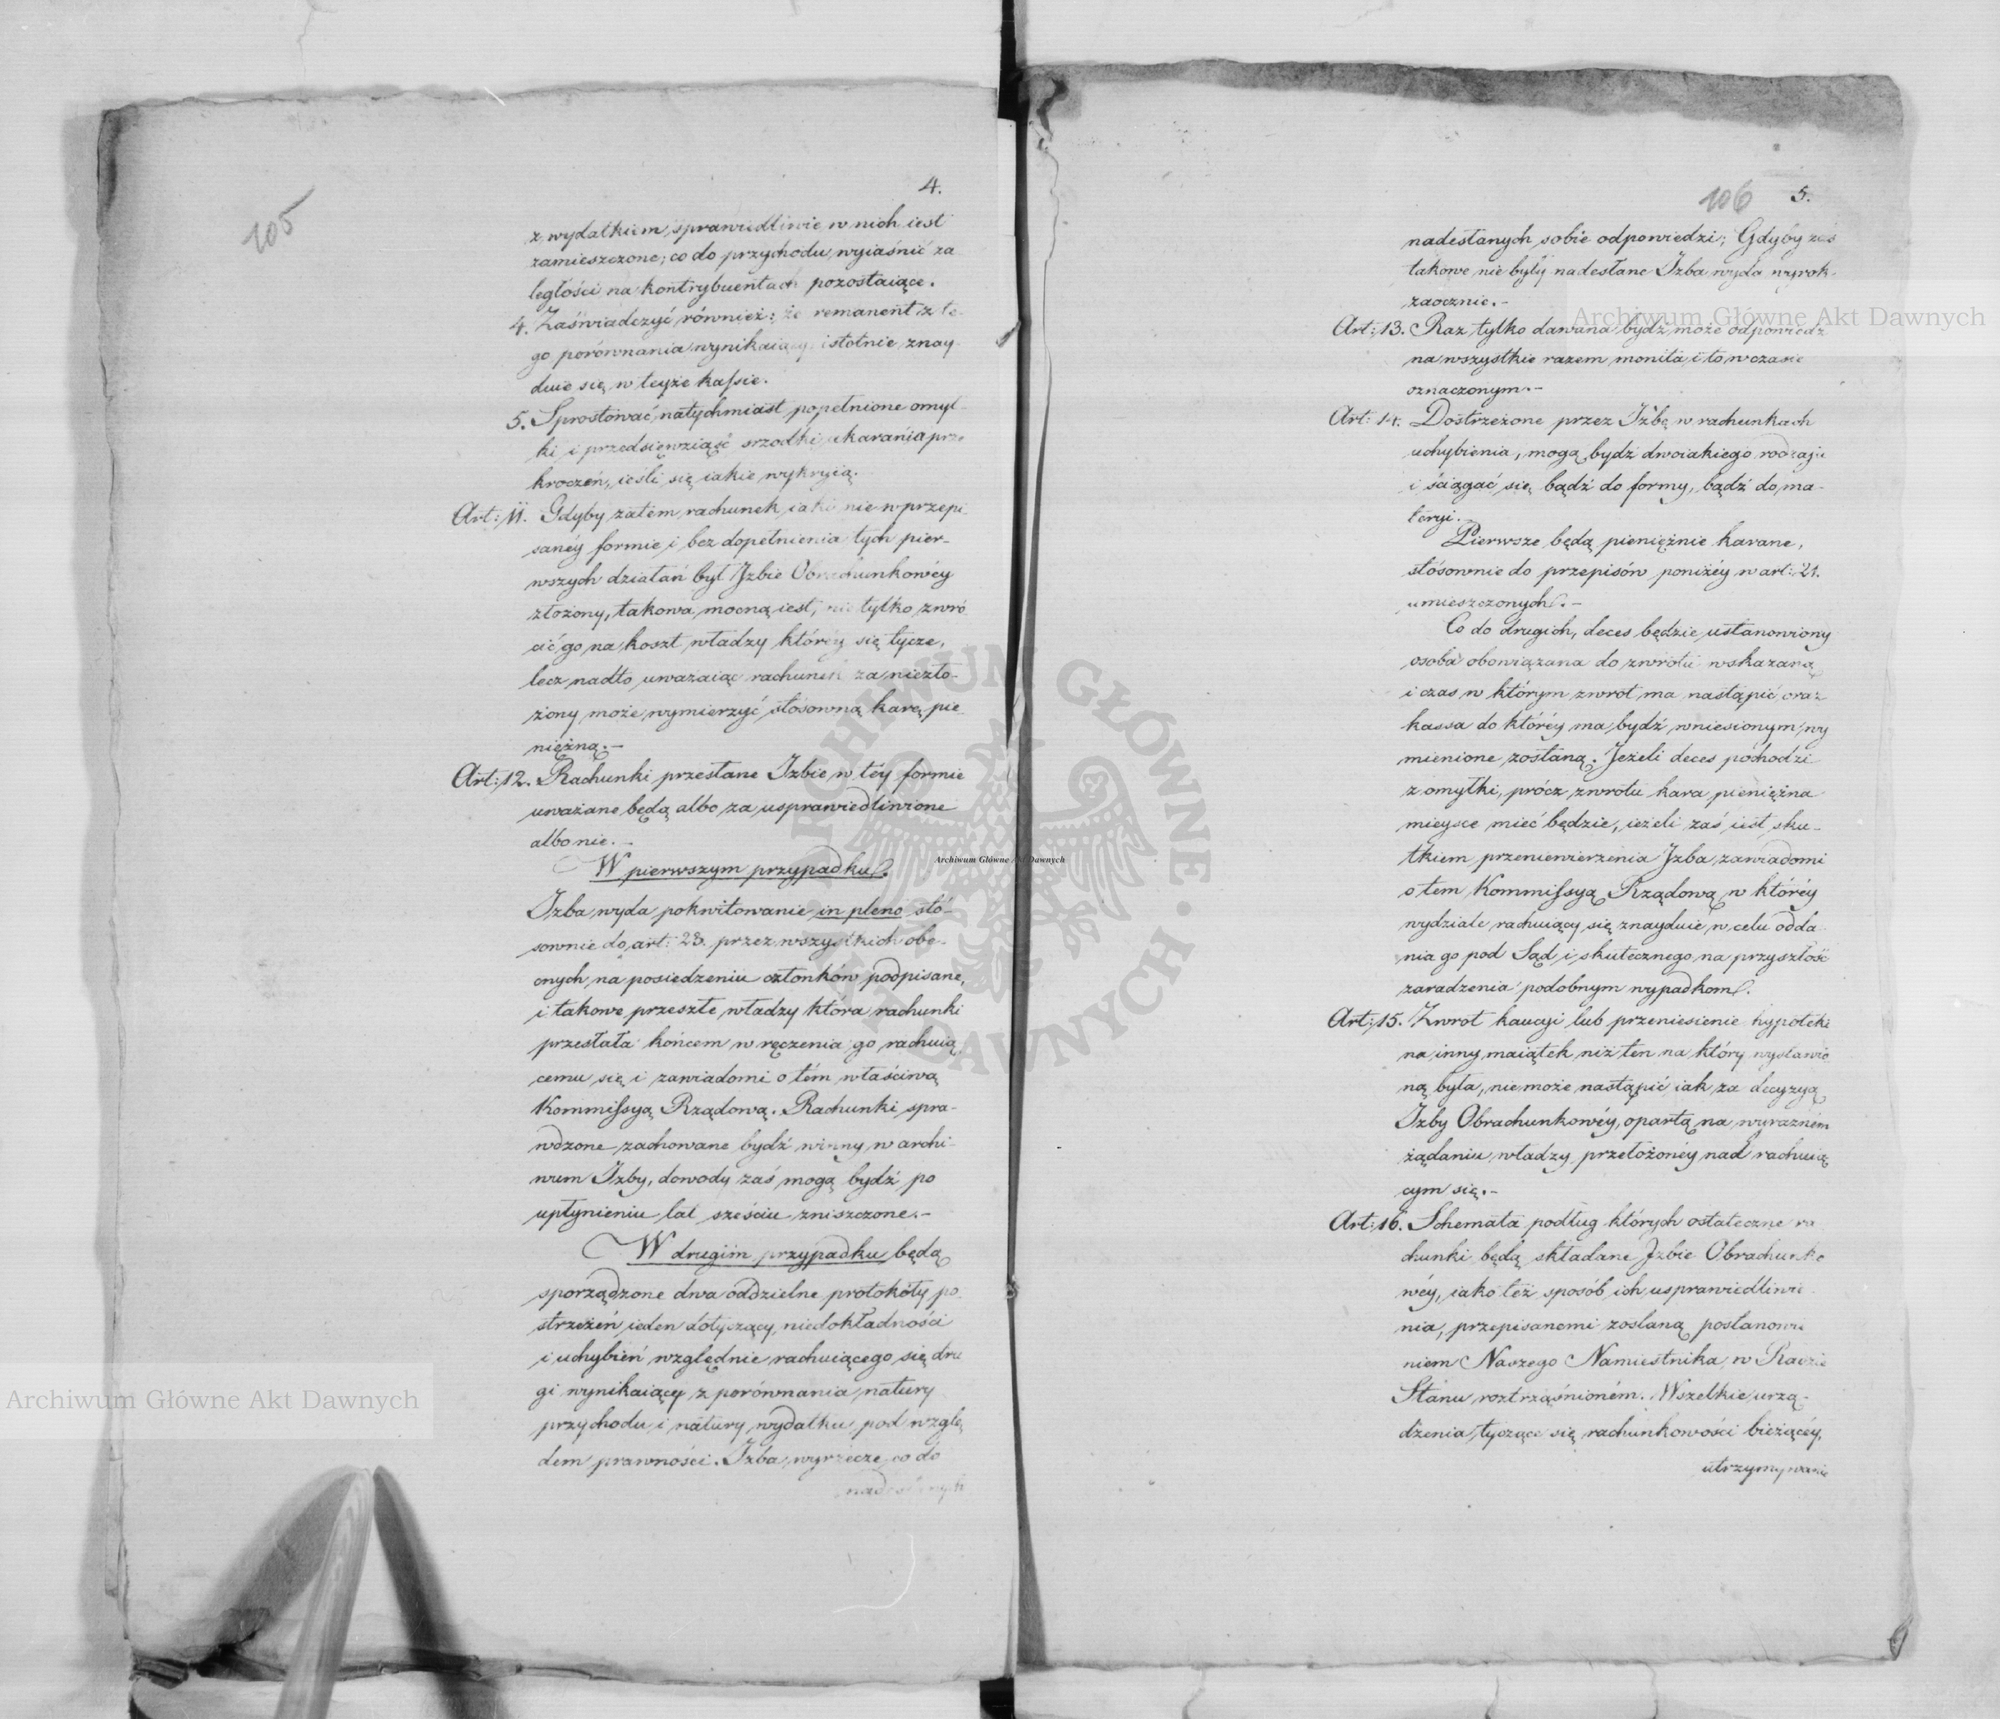 105
4.
z wydatkiem sprawiedliwie w nich iest
zamieszczone; co do przychodu, wyiaśnić za
ległości na kontrybuentach pozostaiące.
4. Zaświadczyć również: że remanent z te-
go porównania wynikaiący istotnie znay-
duie się w teyże kassie.
5. Sprostować natychmiast popełnione omył-
ki i przedsięwziąść srzodki ukarania prze
kroczeń, ieśli się iakie wykryią.
Art: 11. Gdyby zatem rachunek iaki nie w przepi
sanéy formie i bez dopełnienia tych pier-
wszych działań był Izbie Obrachunkowéy
złożony, takowa mocną iest, nie tylko zwró
cić go na koszt władzy któréy się tycze,
lecz nadto uważaiąc rachunek za niezło-
żony może wymierzyć stósowną karę pie-
niężną.-
Art: 12. Rachunki przesłane Izbie w téy formie
uważane będą albo za usprawiedliwione
albo nie.-
W pierwszym przypadku.
Izba wyda pokwitowanie in pleno stó-
sownie do art: 28. przez wszystkich obe-
cnych na posiedzeniu członków podpisane,
i takowe przeszle władzy która rachunki
przesłała końcem wręczenia go rachuią
cemu się i zawiadomi o tém właściwą
Kommissyą Rządową. Rachunki spra-
wdzone zachowane bydź winny w archi-
wum Izby, dowody zaś mogą bydź po
upłynieniu lat sześciu zniszczone.-
W drugim przypadku będą
sporządzone dwa oddzielne protokóły po
strzeżeń ieden dotyczący niedokładności
i uchybień względnie rachuiącego się dru
gi wynikaiący z porównania natury
przychodu i natury wydatku pod wzglę
dem prawności. Izba wyrzecze co do
nadesłanych
106
5.
nadesłanych sobie odpowiedzi; Gdyby zaś
takowe nie były nadesłane Izba wyda wyrok
zaocznie.-
Art: 13. Raz tylko dawana bydź może odpowiedź
na wszystkie razem monita, i to w czasie
oznaczonym.-
Art: 14. Dostrzeżone przez Izbę w rachunkach
uchybienia, mogą bydź dwoiakiego rodzaju
i ściągać się bądź do formy, bądź do ma-
teryi.
Pierwsze będą pieniężnie karane,
stósownie do przepisów poniżéy w art: 21.
umieszczonych.-
Co do drugich, deces będzie ustanowiony
osoba obowiązana do zwrotu wskazaną
i czas w którym zwrot ma nastąpić oraz
kassa do któréy ma bydź wniesionym, wy
mienione zostaną. Jeżeli deces pochodzi
z omyłki, prócz zwrotu kara pieniężna
mieysce mieć będzie, ieżeli zaś iest sku-
tkiem przeniewierzenia Izba zawiadomi
o tem Kommissyą Rządową w któréy
wydziale rachuiący się znayduie w celu odda
nia go pod Sąd i skutecznego na przyszłość
zaradzenia podobnym wypadkom.
Art: 15. Zwrot kaucyi lub przeniesienie hypoteki
na inny maiątek niż ten na który wystawio
ną była, nie może nastąpić iak za decyzyą
Izby Obrachunkowéy, opartą na wyraźném
żądaniu władzy przełożonéy nad rachuią
cym się.-
Art: 16. Schemata podług których ostateczne ra
chunki będą składane Izbie Obrachunko
wéy, iako téż sposób ich usprawiedliwie
nia, przepisanemi zostaną postanowie
niem Naszego Namiestnika w Radzie
Stanu roztrząśnioném. Wszelkie urzą-
dzenia tyczące się rachunkowości bieżącéy,
utrzymywanie
Archiwum Główne Akt Dawnych
Archiwum Główne Akt Dawnych
Archiwum Główne Akt Dawnych
ARCHIWUM GŁÓWNE • AKT DAWNYCH •